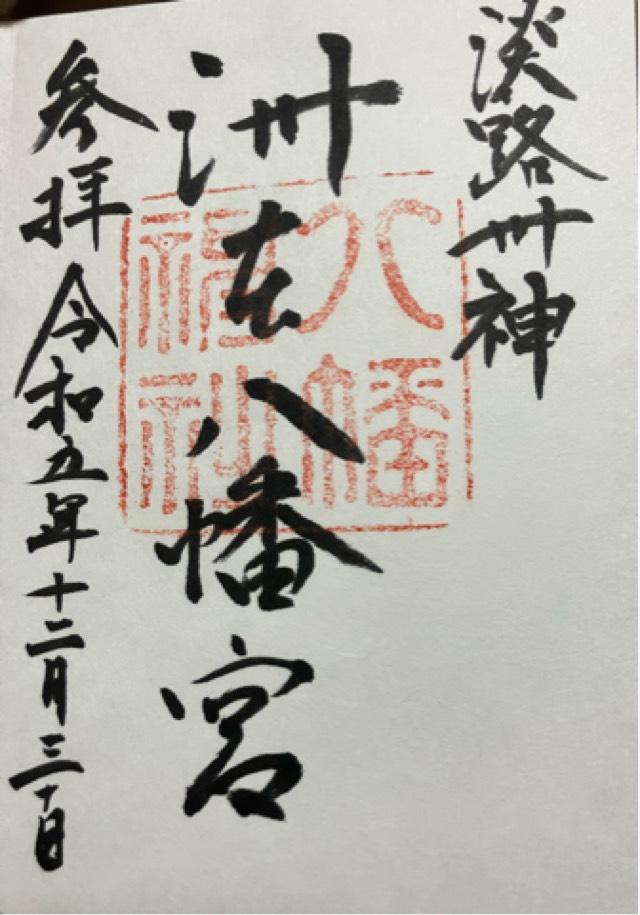 淡路州神
洲本八幡宮
八幡
神社
参拝 令和五年十二月三十日